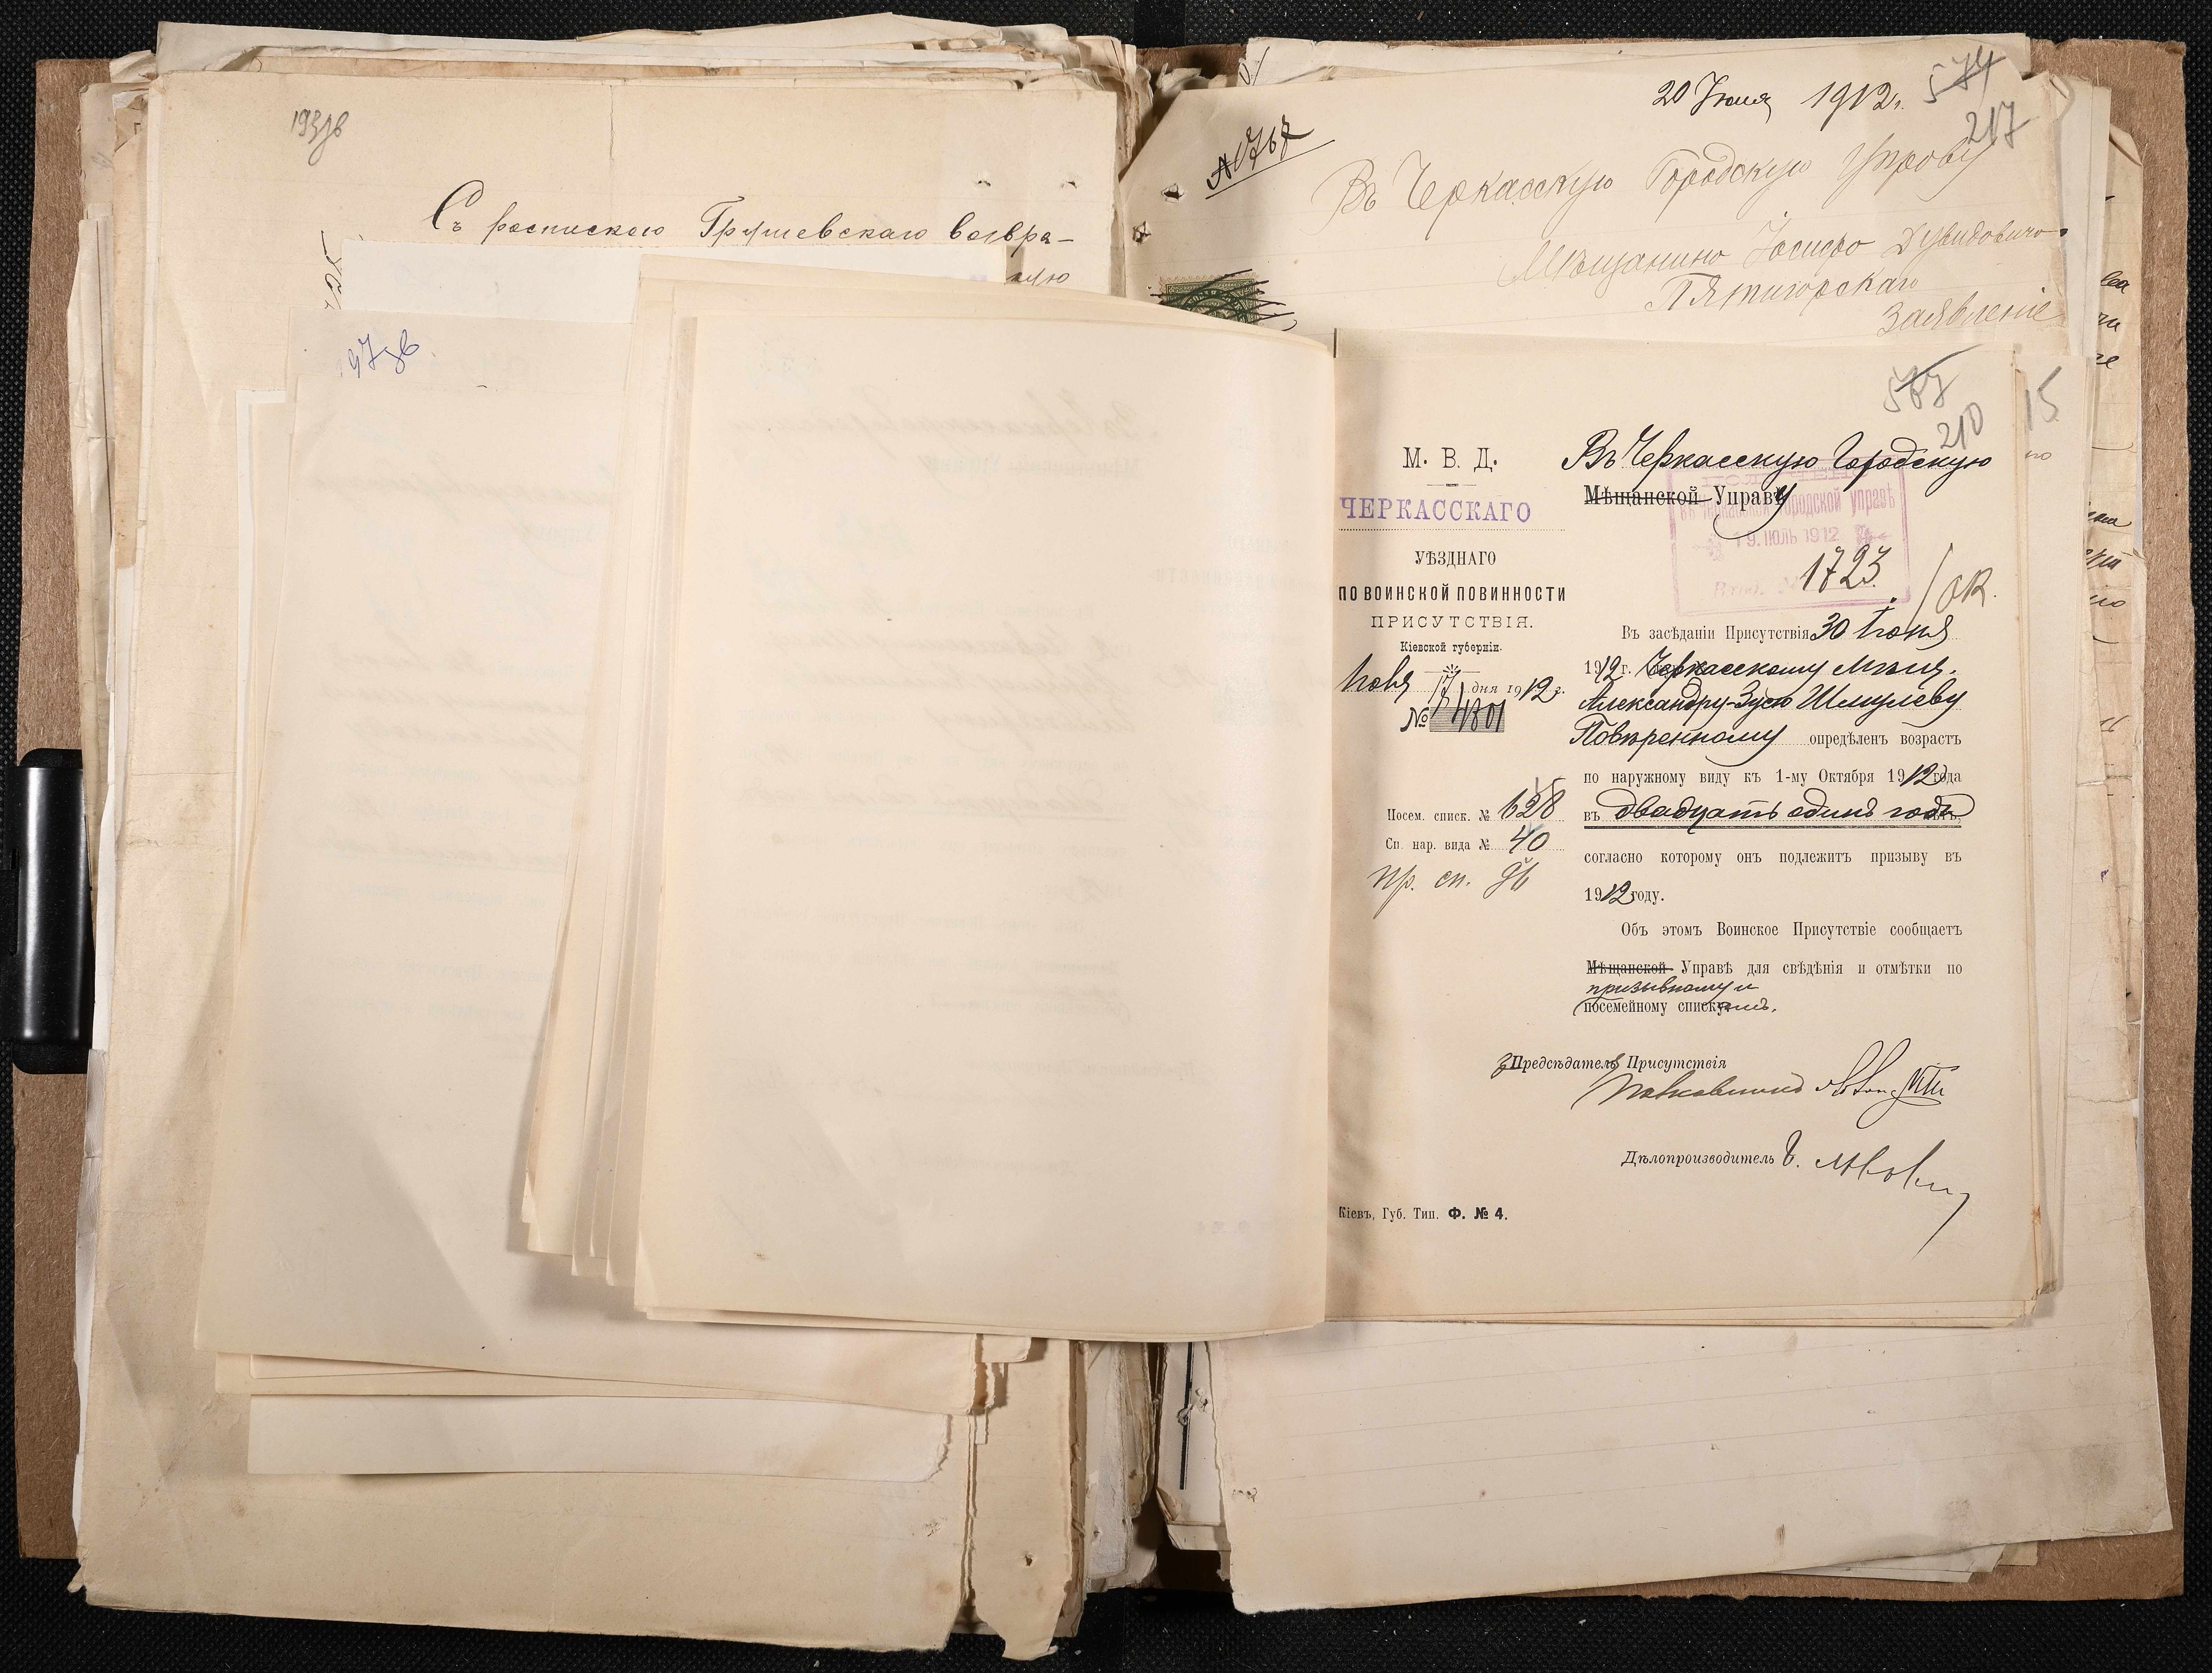 193 зв
Съ роспискою Грушевскаго возвра-
197 зв
20 Іюля 1912 г.
574
217
№ 767
Въ Черкасскую Городскую Управу
Мѣщанина Іосифа Дувидовича
Пятигорскаго
Заявленіе
15
567
210
М. В. Д.
ЧЕРКАССКАГО
УѢЗДНАГО
ПО ВОИНСКОЙ ПОВИННОСТИ
ПРИСУТСТВІЯ.
Кіевской губерніи.
Іюля 17 дня 1912 г.
№ 4801
Посем. списк. № 628
Сп. нар. вида № 40
пр. сп.
Въ Черкасскую Городскую
Мѣщанской Управу
въ Черкасской Городской Управѣ
19. ІЮЛЬ 1912
Вход. № 1723
Въ засѣданіи Присутствія 30 Іюня
1912 г. Черкасскому мѣщ.
Александру-Зусю Шмулеву
Повѣренному опредѣленъ возрастъ
по наружному виду къ 1-му Октября 1912 года
въ двадцать одинъ годъ,
согласно которому онъ подлежитъ призыву въ
1912 году.
Объ этомъ Воинское Присутствіе сообщаетъ
Мѣщанской Управѣ для свѣдѣнія и отмѣтки по
призывному и
посемейному спискамъ.
За Предсѣдателя Присутствія
Дѣлопроизводитель
Кіевъ, Губ. Тип. Ф. № 4.